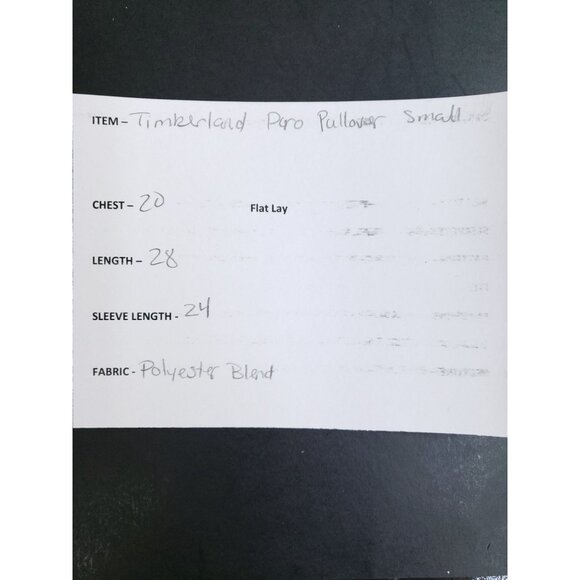 ITEM – Timberland Pro Pullover Small
CHEST – 20 Flat Lay
LENGTH – 28
SLEEVE LENGTH - 24
FABRIC - Polyester Blend